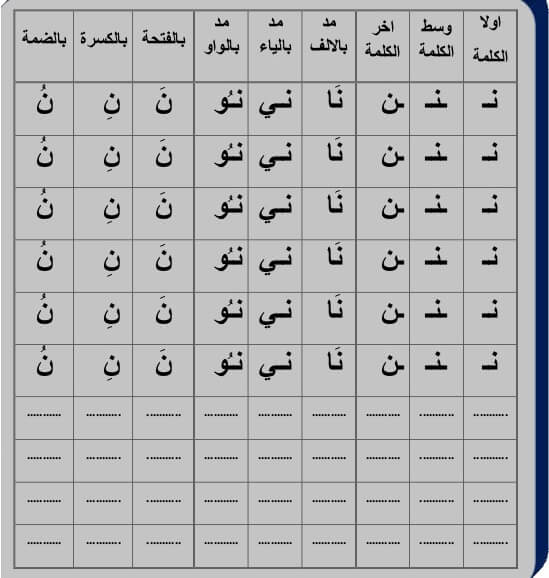 اولا الكلمة وسط الكلمة اخر الكلمة مد بالالف مد بالياء مد بالواو بالفتحة بالكسرة بالضمة
نـ ـنـ ـن نَا نـي نـُو نَ نِ نُ
نـ ـنـ ـن نَا نـي نـُو نَ نِ نُ
نـ ـنـ ـن نَا نـي نـُو نَ نِ نُ
نـ ـنـ ـن نَا نـي نـُو نَ نِ نُ
نـ ـنـ ـن نَا نـي نـُو نَ نِ نُ
نـ ـنـ ـن نَا نـي نـُو نَ نِ نُ
........... ........... ........... ........... ........... ........... ........... ........... ...........
........... ........... ........... ........... ........... ........... ........... ........... ...........
........... ........... ........... ........... ........... ........... ........... ........... ...........
........... ........... ........... ........... ........... ........... ........... ........... ...........